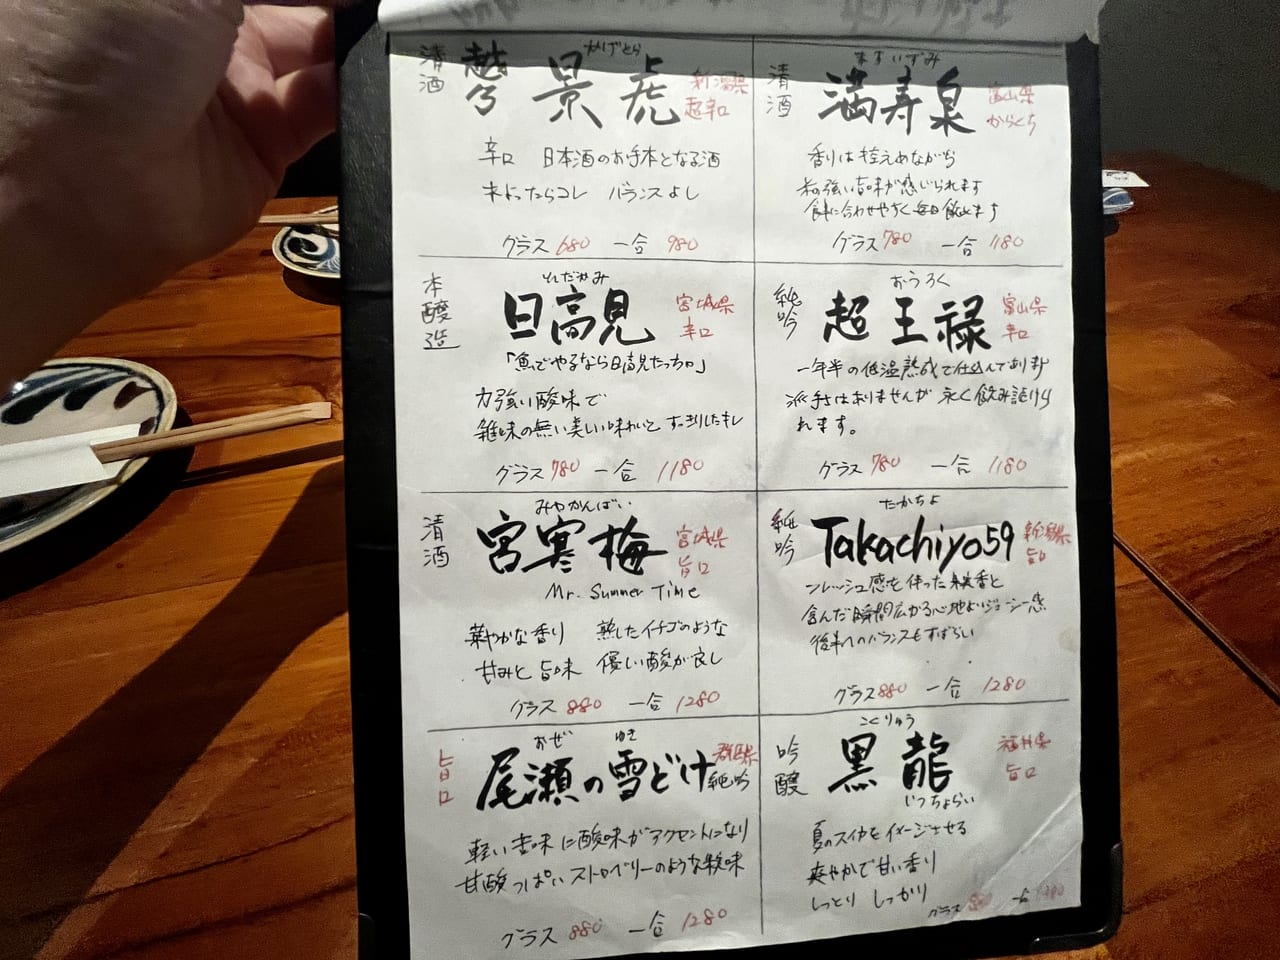 清酒
かげとら
越乃 景虎
新潟県
超辛口
辛口 日本酒のお手本となる酒
まよったらコレ バランスよし
グラス 680 一合 980
清酒
ますいずみ
満寿泉
富山県
からくち
香りは控えめながら
米の強い旨味が感じられます
食事に合わせやすく毎日飲めます
グラス 780 一合 1180
本醸造
ひだかみ
日高見
宮城県
辛口
「魚でやるなら日高見だっちゃ」
力強い酸味で
雑味の無い美しい味わいと すっきりしたキレ
グラス 780 一合 1180
純吟
おうろく
超王禄
富山県
辛口
一年半の低温熟成で仕込んであります
派手さはありませんが 永く飲み続けら
れます。
グラス 780 一合 1180
清酒
みやかんばい
宮寒梅
宮城県
旨口
Mr. Summer Time
華やかな香り 熟したイチゴのような
甘みと旨味 優しい酸が良し
グラス 880 一合 1280
純吟
たかちよ
Takachiyo59
新潟県
旨口
フレッシュ感を伴った果実香と
含んだ瞬間広がる心地よいジューシー感
後半へのバランスもすばらしい
グラス 880 一合 1280
旨口
おぜ ゆき
尾瀬の雪どけ
群馬県
純吟
軽い旨味に酸味がアクセントになり
甘酸っぱいストロベリーのような酸味
グラス 880 一合 1280
吟醸
こくりゅう
黒龍
いっちょらい
福井県
旨口
夏のスイカをイメージさせる
爽やかで甘い香り
しっとり しっかり
グラス 880 一合 1280